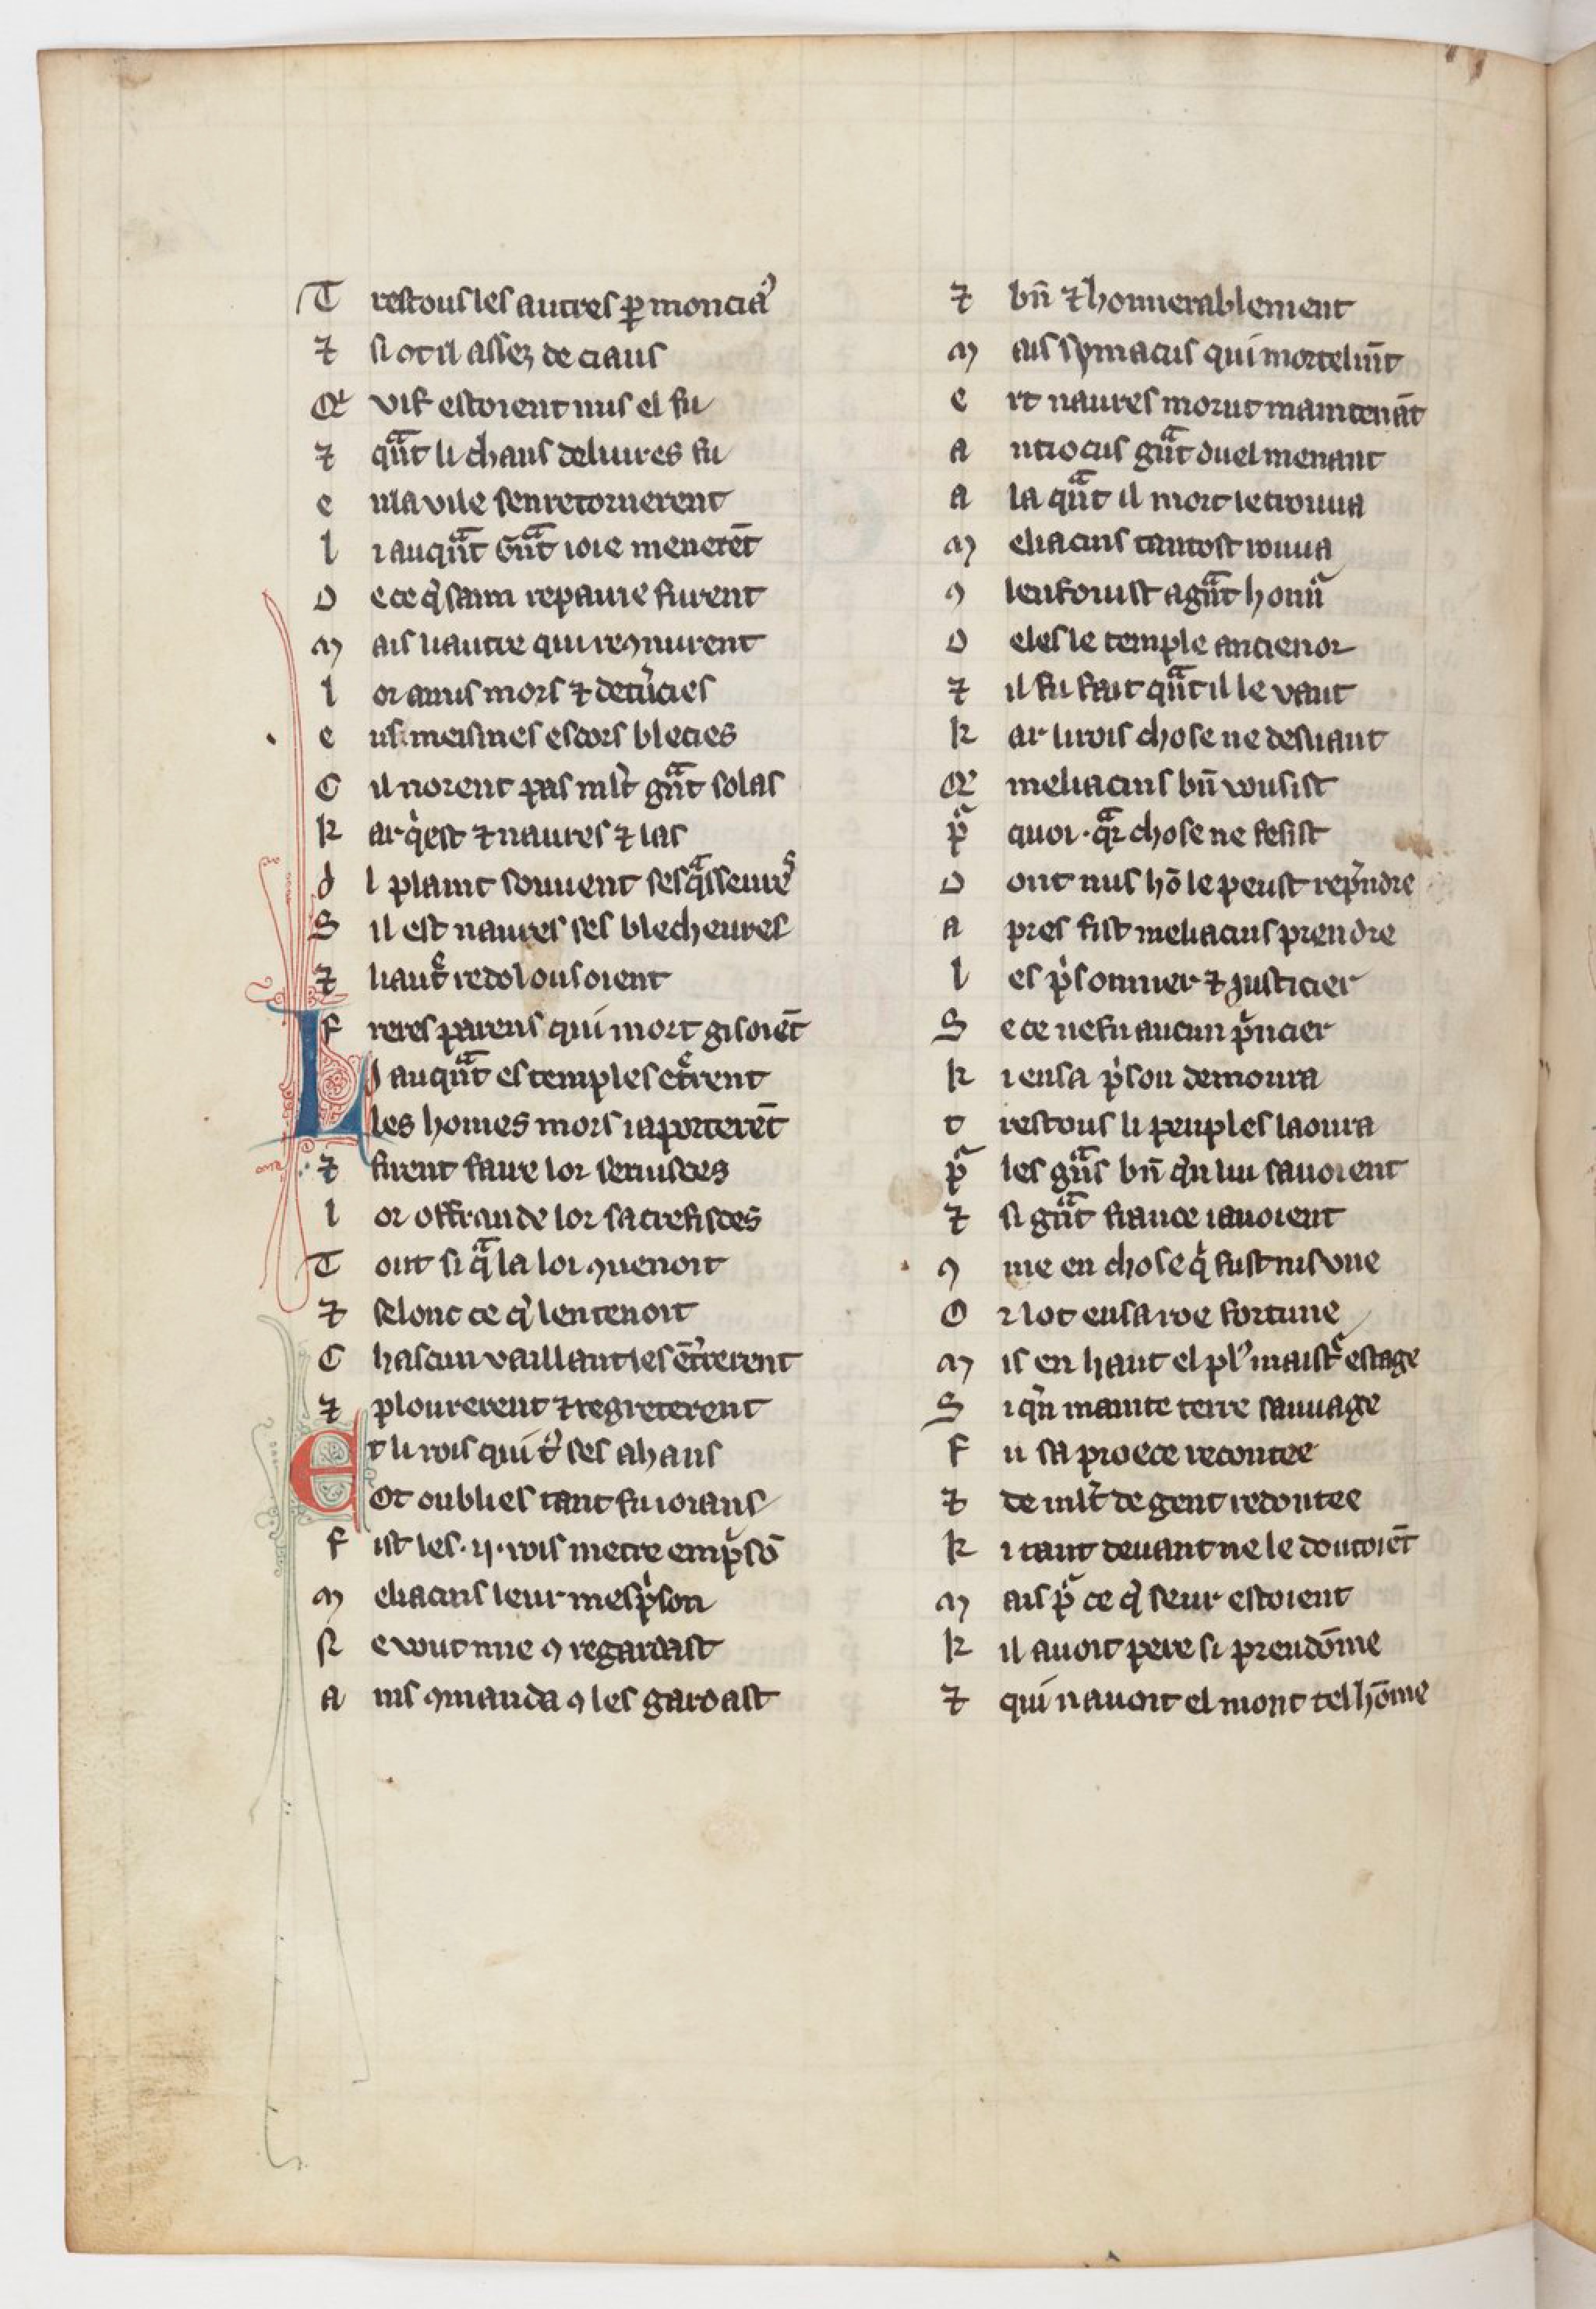 T restous les autres ꝑ moncia᷒
⁊ si ot il assez de ciaus
Q̛ vif estoient nus el fu
⁊ qᵃ̃nt li chans deliures fu
e nla vile sen retornerent
l i auqᵃ̃nt Gᵃ̃nt ioie menerēt
D e ce q̛ sain repairie furent
M ais li autre qui reꝯnurent
l or amis mors ⁊ detrᵉnciés
e us meismes es cors blecies
C il norent pas ml̃t gᵃ̃nt solas
k ar qⁱ est ⁊ naures ⁊ las
I l plaint souuent ses qᵃsseure᷒
S il est naures ses blecheures
⁊ li autᵉ̃ redolousoient
f reres parens qui mort gisoiēt
L J auqᵃ̃nt es temples etᵉrent
les homes mors i aporterēt
⁊ firent faire lor seruisces
l or offrande lor sacrefisces
T out si qᵃ̃ la loi ꝯuenoit
⁊ selonc ce q̛ len tenoit
C hascun vaillant les ēt̛rerent
⁊ plourerent ⁊ regreterent
E t li rois qui t̛ ses ahans
Ot oublies tant fu ioians
f ist les .ij. rois metre em pⁱsō
M eliacins leur mespⁱson
N e vout mie ꝯ regardast
a ins ꝯmanda ꝯ les gardast
⁊ bn̄ ⁊ honnerablement
M ais symacus qui mortelmn̄t
e rt naures morut maintenāt
a ntiocus gᵃ̃nt duel menant
a la qᵃ̃nt il mort le trouua
M eliacins tantost rouua
ꝯ lenfouist a gᵃ̃nt honn᷑
D eles le temple ancienor
⁊ il fu fait qᵃ̃nt il le vaut
k ar li rois chose ne desuaut
Q̛ meliacins bn̄ vousist
p᷑ quoi .qᵃ̃r chose ne fesist
D ont nus hō le peust rep̛ndre
a pres fist meliacins prendre
l es pⁱsonnier ⁊ justicier
S e ce ne fu aucun pⁱncier
k i en sa pⁱson demoura
t restous li peuples laoura
p᷑ les gᵃ̃ns bn̄ q̛n lui sauoient
⁊ si gᵃ̃nt fiance i auoient
ꝯ me en chose qⁱ fust nis vne
O r lot en sa roe fortune
M is en haut el pl᷒ maistᵉ estage
S i q̛n mainte terre sauuage
f u sa proece recontee
⁊ de ml̃t de gent redoutee
k i tant deuant ne le doutoiēt
M ais p᷑ ce q̛ seur estoient
k il auoit pere si preudōme
⁊ qui nauoit el mont tel hōme